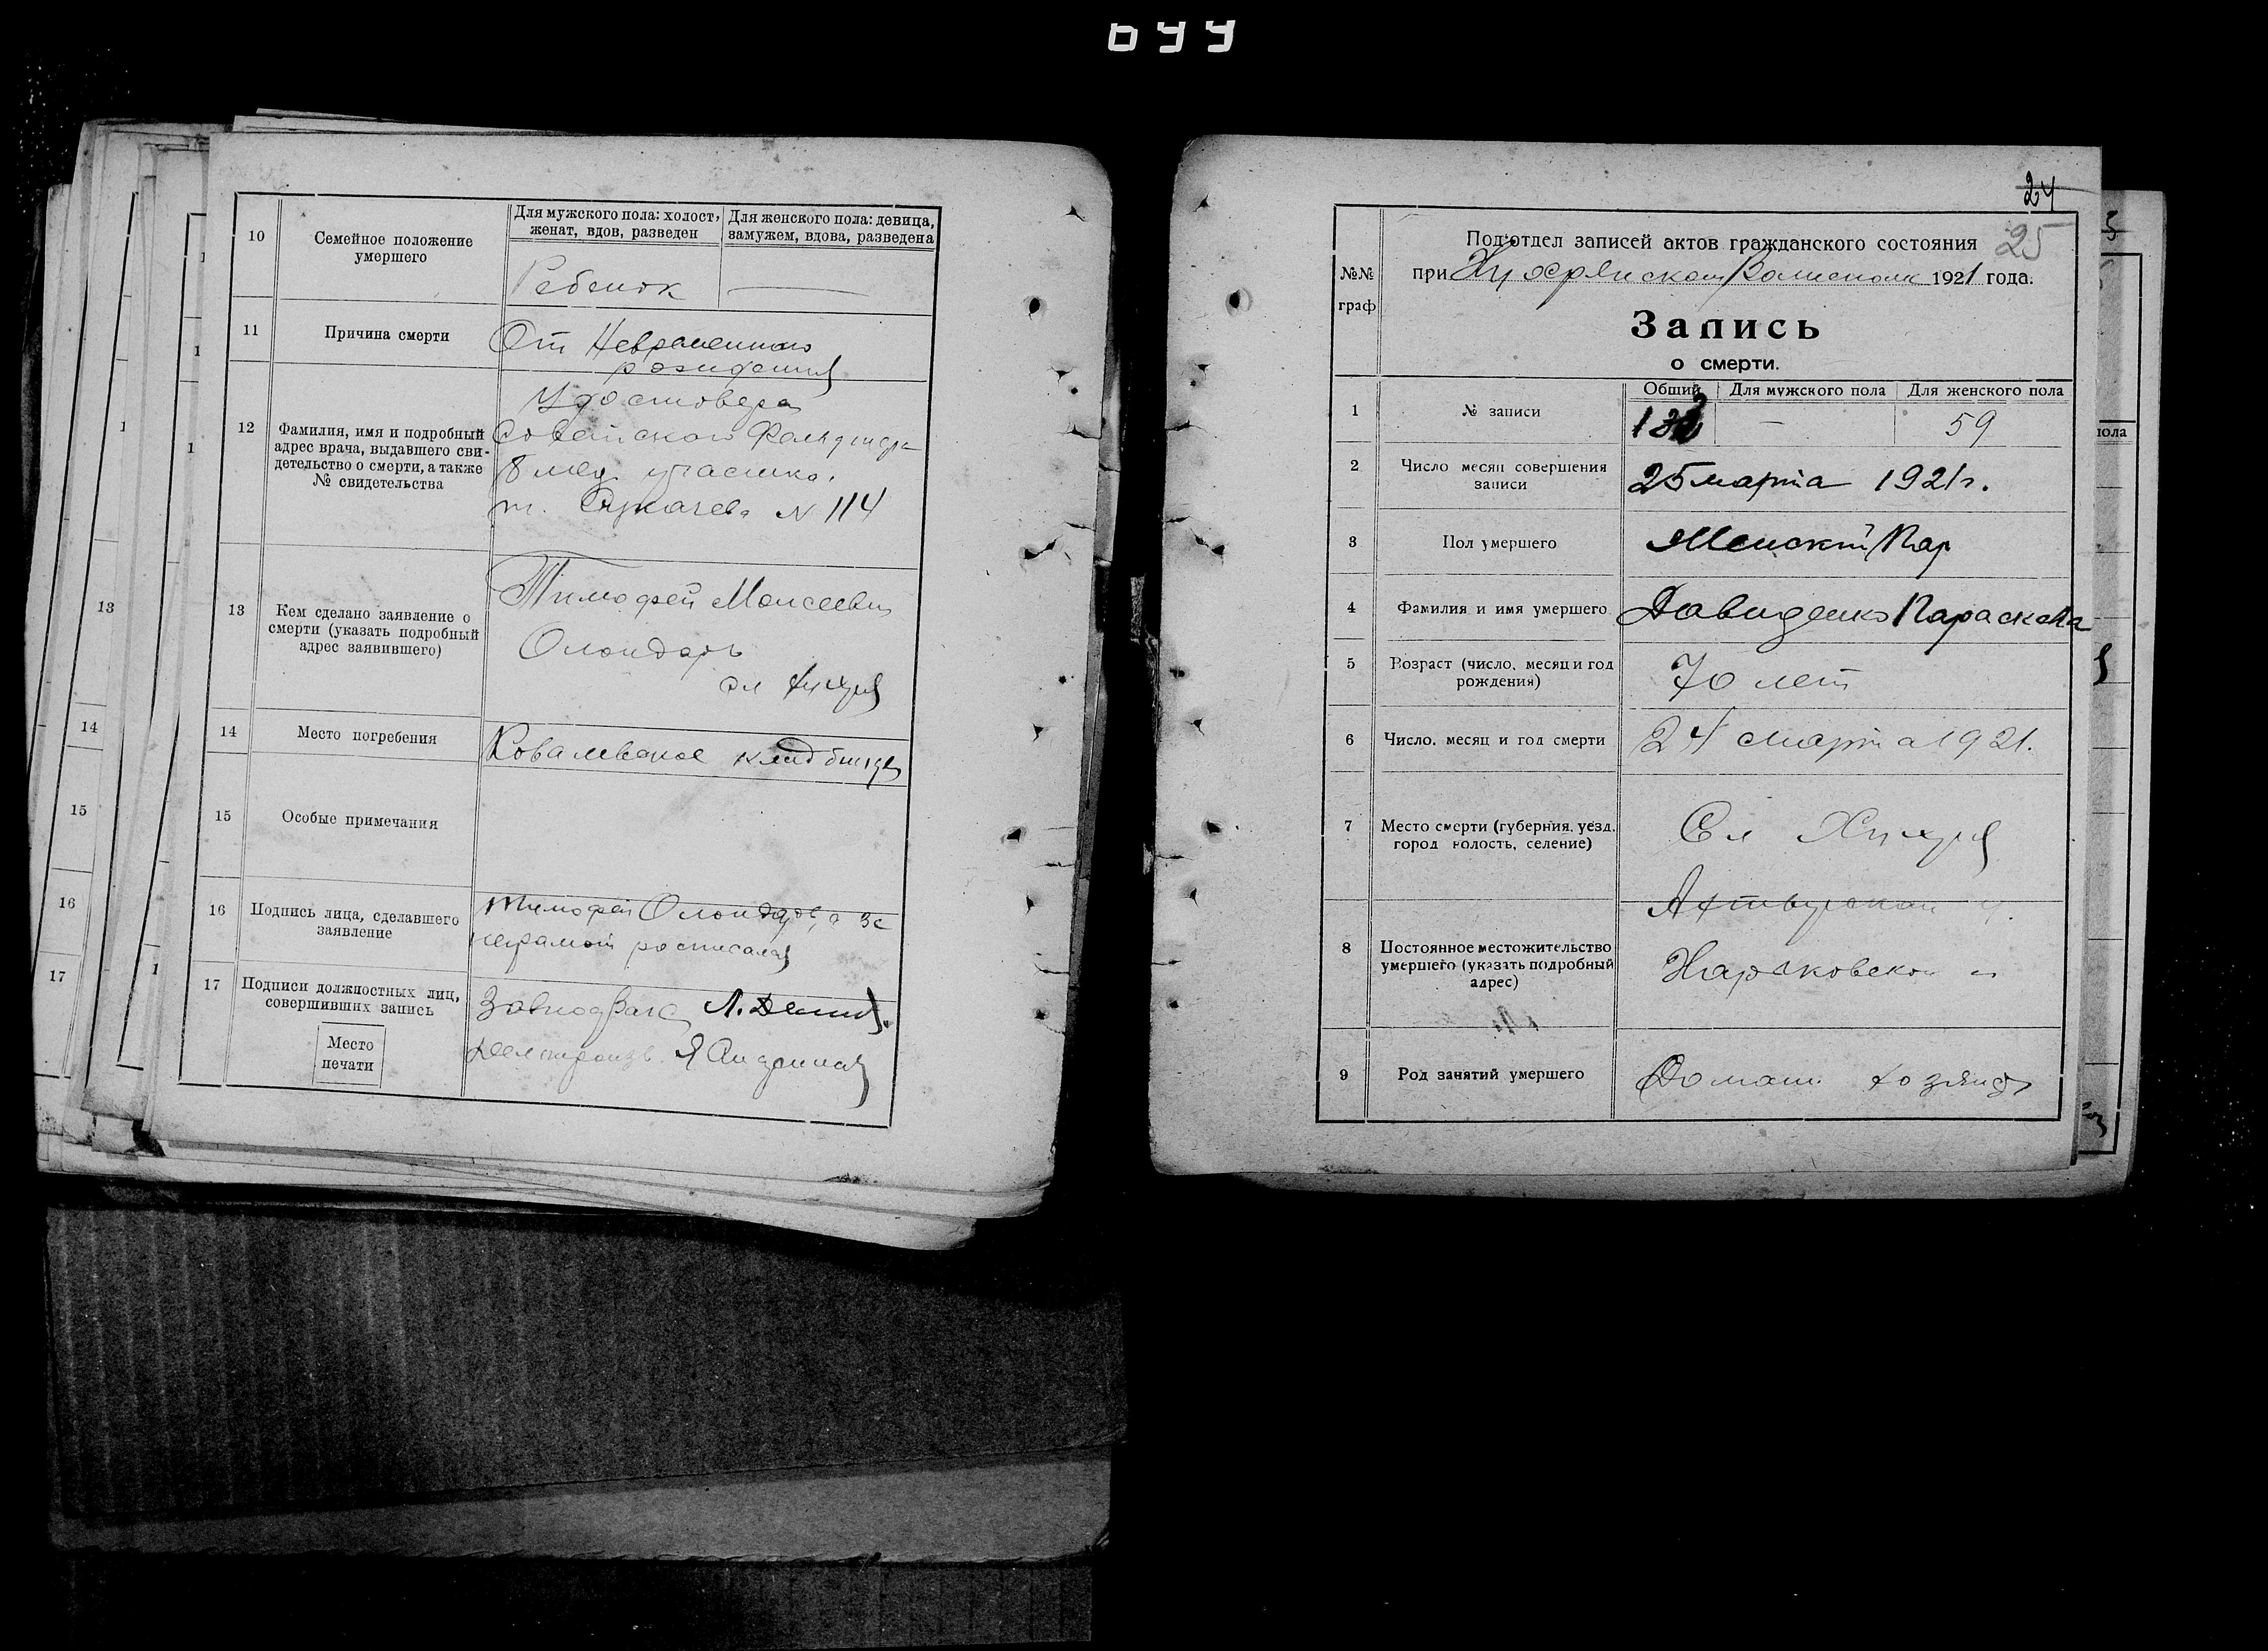 699
10
Семейное положение
умершего
Для мужского пола: холост,
женат, вдов, разведен
Для женского пола: девица,
замужем, вдова, разведена
Ребенок
—
11
Причина смерти
От Невременного
рождения
12
Фамилия, имя и подробный
адрес врача, выдавшего сви-
детельство о смерти, а также
№ свидетельства
Удостовера
Советского Фельдшера
8 мед участка.
N 114
13
Кем сделано заявление о
смерти (указать подробный
адрес заявившего)
Тимофей Моисеевич
Олондарь
14
Место погребения
Ковалевское кладбище
15
Особые примечания
16
Подпись лица, сделавшего
заявление
Тимофей Олондарь, а за
неграмот росписался
17
Подписи должностных лиц,
совершивших запись
Место
печати
Завподзагс
Делопроизв.
13
14
15
16
17
24
25
№№
граф
Подотдел записей актов гражданского состояния
при 1921 года.
Запись
о смерти.
1
№ записи
Общий
Для мужского пола
Для женского пола
—
59
2
Число месяц совершения
записи
25 марта 1921 г.
3
Пол умершего
Женский
4
Фамилия и имя умершего
Давиденко Параскева
5
Возраст (число, месяц и год
рождения)
70 лет
6
Число, месяц и год смерти
24 марта 1921.
7
Место смерти (губерния, уезд,
город волость, селение)
Сл
Ахтырской у.
8
Постоянное местожительство
умершего (указать подробный
адрес)
Харьковской г
9
Род занятий умершего
Домаш. хозяйст